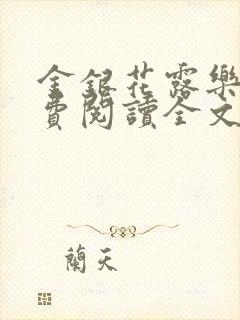 金銀花露樂
費閱讀全文
蘭天